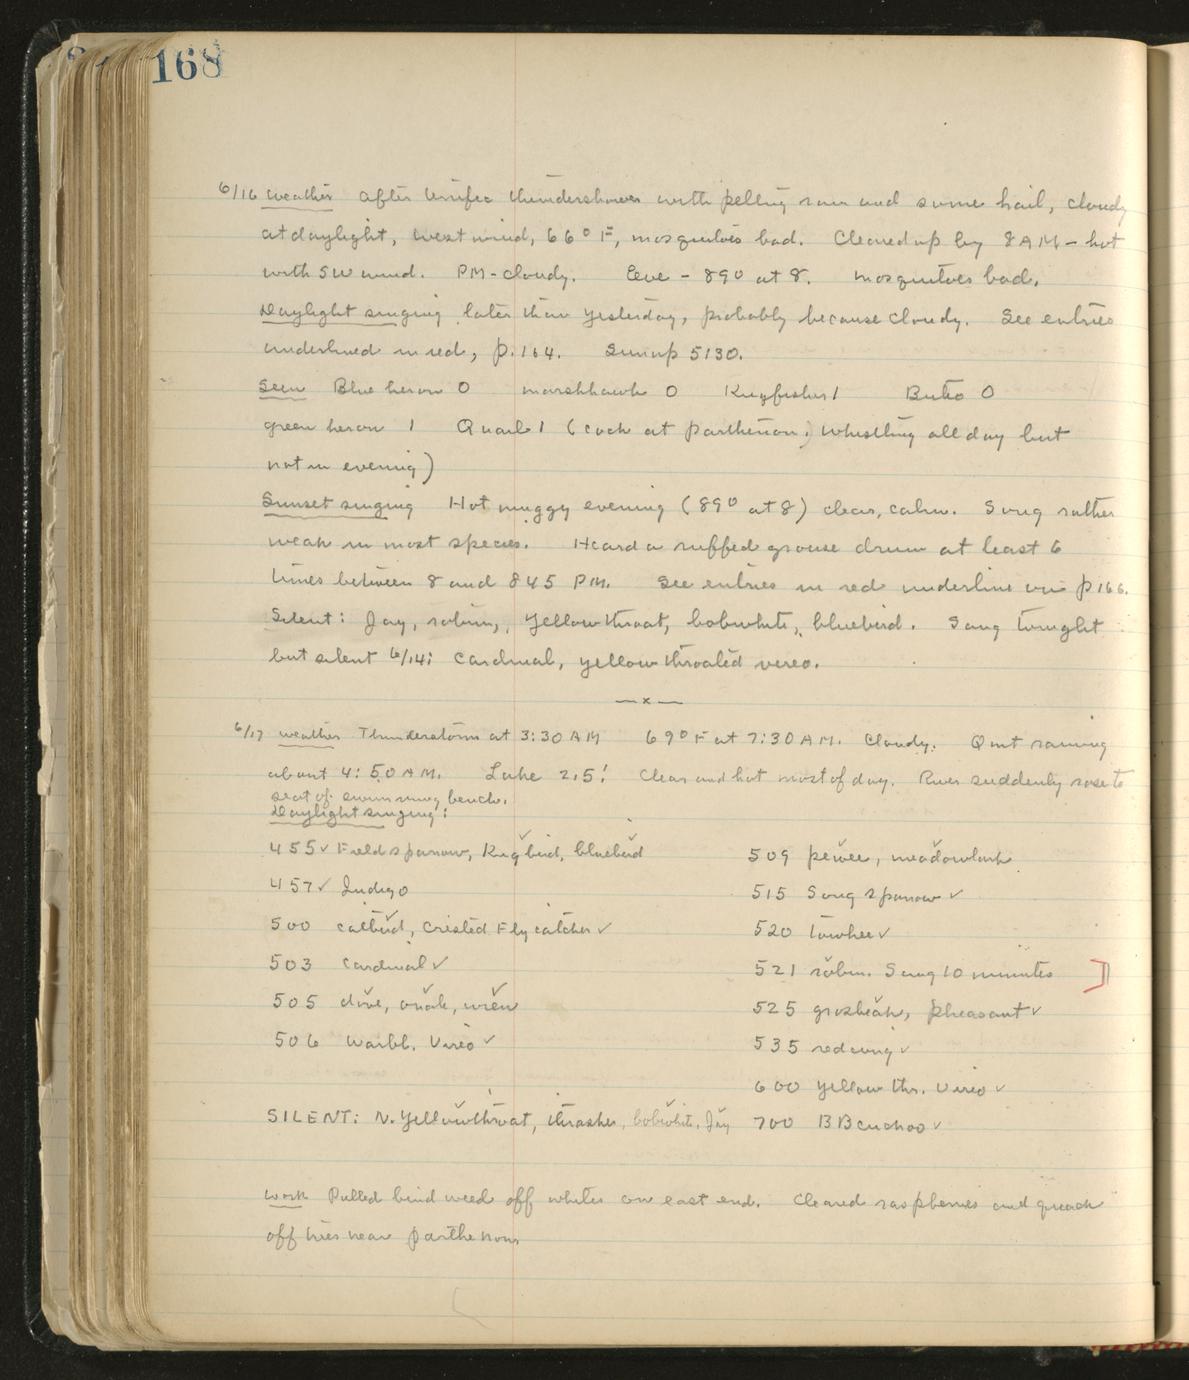 168
6/16 Weather After terrific thundershower with pelting rain and some hail, cloudy
at daylight, west wind, 66° F, mosquitoes bad. Cleared up by 8 AM - hot
with SW wind. PM - cloudy. Eve - 89° at 8. Mosquitoes bad.
Daylight singing later than yesterday, probably because cloudy. See entries
underlined in red, p. 164. Sunup 5:30.
Seen Blue heron 0 marshhawk 0 Kingfisher 1 Buteo 0
green heron 1 Quail 1 (cock at parthenon) whistling all day but
not in evening)
Sunset singing Hot muggy evening (89° at 8) clear, calm. Song rather
weak in most species. Heard a ruffed grouse drum at least 6
times between 8 and 845 PM. See entries in red underline on p 166.
Silent: Jay, robin, yellowthroat, bobwhite, bluebird. Sang tonight
but silent 6/14: Cardinal, yellow throated vireo.
—x—
6/17 Weather Thunderstorm at 3:30 AM 69° F at 7:30 AM. Cloudy. Quit raining
about 4:50 AM. Lake 2.5! Clear and hot most of day. River suddenly rose to
seat of swimming bench.
Daylight singing:
455 ✓ Field sparrow, Kingbird, bluebird
457 ✓ Indigo
500 catbird, Crested Flycatcher ✓
503 Cardinal ✓
505 dove, oriole, wren
506 Warbl. Vireo ✓
509 pewee, meadowlark
515 Song sparrow ✓
520 Towhee ✓
521 robin. Sang 10 minutes ]
525 grosbeak, pheasant ✓
535 redwing ✓
600 yellow thr. Vireo ✓
700 BB cuckoo ✓
SILENT: N. Yellowthroat, thrasher, bobwhite, Jay
Work Pulled bind weed off whites on east end. Cleared raspberries and quack
off trees near parthenon